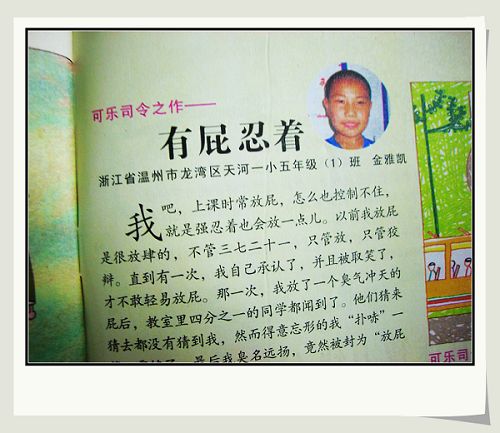 可乐司令之作——
有屁忍着
浙江省温州市龙湾区天河一小五年级（1）班 金雅凯
我吧，上课时常放屁，怎么也控制不住，
就是强忍着也会放一点儿。以前我放屁
是很放肆的，不管三七二十一，只管放，只管狡
辩。直到有一次，我自己承认了，并且被取笑了，
才不敢轻易放屁。那一次，我放了一个臭气冲天的
屁后，教室里四分之一的同学都闻到了。他们猜来
猜去都没有猜到我，然而得意忘形的我“扑哧”一
最后我臭名远扬，竟然被封为“放屁
可乐司